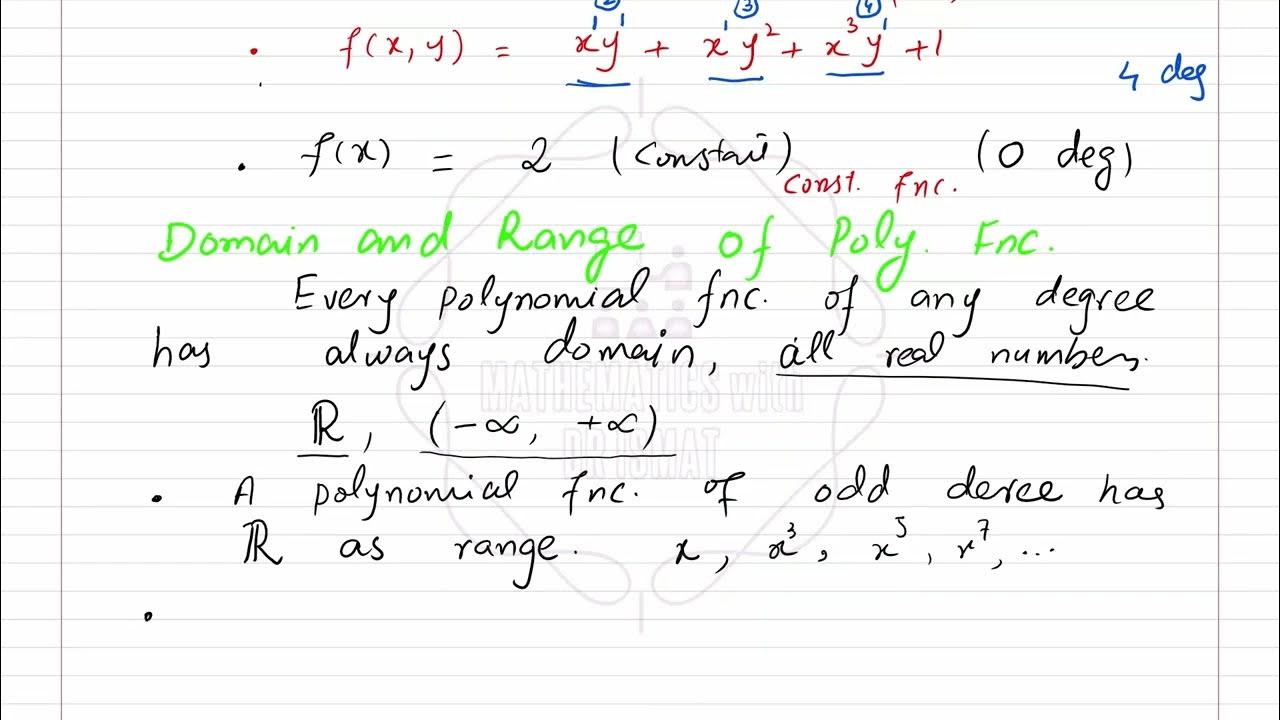 ② ③ ④
• f(x, y) = xy + xy² + x³y + 1
4 deg
• f(x) = 2 (Constant) (0 deg)
Const. Fnc.
Domain and Range of Poly. Fnc.
Every polynomial fnc. of any degree
has always domain, all real numbers.
ℝ, (-∞, +∞)
• A polynomial fnc. of odd deree has
ℝ as range. x, x³, x⁵, x⁷, ...
•
MATHEMATICS with
DR ISMAT